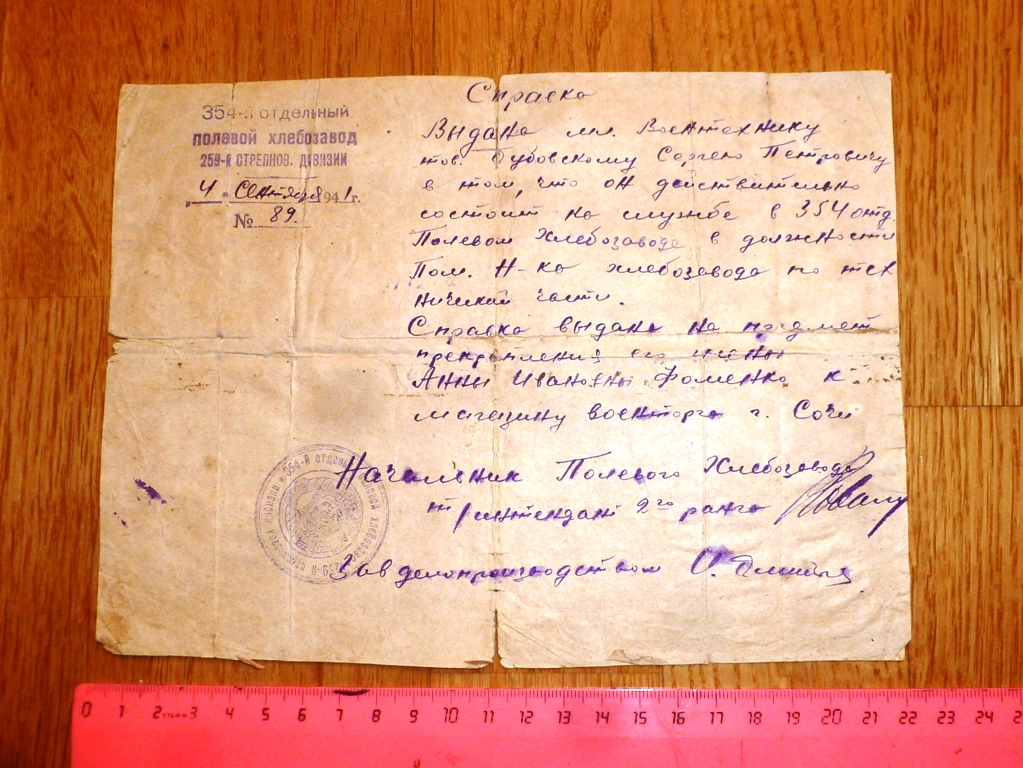 354-й отдельный
полевой хлебозавод
259-й стрелков. дивизии
"4" Сентября 1941 г.
№ 89.
Справка
Выдана мл. Воентехнику
тов. Бубовскому Сергею Петровичу
в том, что он действительно
состоит на службе в 354 отд.
Полевом Хлебозаводе в должности
Пом. Н-ка хлебозавода по тех
нической части.
Справка выдана на предмет
прекрепления его жены
Анны Ивановны Фоменко к
магазину военторга г. Сочи
Начальник Полевого Хлебозавода
т/интендант 2го ранга
Зав делопроизводством
354-й отдельный полевой хлебозавод 259-й стрелковой дивизии
0 1 2 3 4 5 6 7 8 9 10 11 12 13 14 15 16 17 18 19 20 21 22 23 24